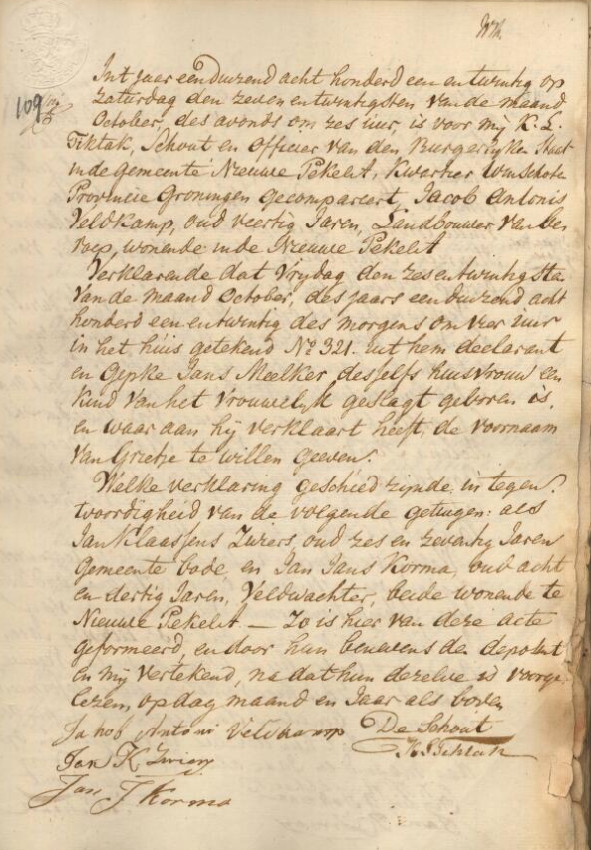 109
Int jaar eenduizend acht honderd een en twintig op
zaturdag den zeven en twintigsten van de maand
October, des avonds om zes uur, is voor mij K. L.
Tiktak, Schout en Officier van den Burgerlyken Staat
in de gemeente Nieuwe Pekela, Kwartier Winschoten
Provincie Groningen gecompareert, Jacob Antonis
Veldkamp, oud veertig Jaren, Landbouwer van be
roep, wonende inde Nieuwe Pekela
Verklarende dat Vrijdag den zes en twintigste
van de maand October, des jaars een duizend acht
honderd een en twintig des morgens om vier uur
in het huis getekend No 321. uit hem declarant
en Gepke Jans Meelker desselfs huisvrouw een
kind van het vrouwelijk geslagt geboren is,
en waar aan hij verklaart heeft de voornaam
van Grietje te willen geeven.
Welke verklaring geschied zijnde in tegen
woordigheid van de volgende getuigen als
Jan Klaassens Zwiers, oud zes en zeventig Jaren
Gemeente bode en Jan Jans Korma, oud acht
en dertig Jaren, Veldwachter, beide wonende te
Nieuwe Pekela — Zo is hier van deze acte
geformeerd, en door hun benevens den deposant
en mij vertekend, na dat hun dezelve is voorge
lezen, op dag maand en Jaar als boven
Jakob Antoni Veldkamp De Schout
Jan K Zwiers KLTiktak
Jan J Korma